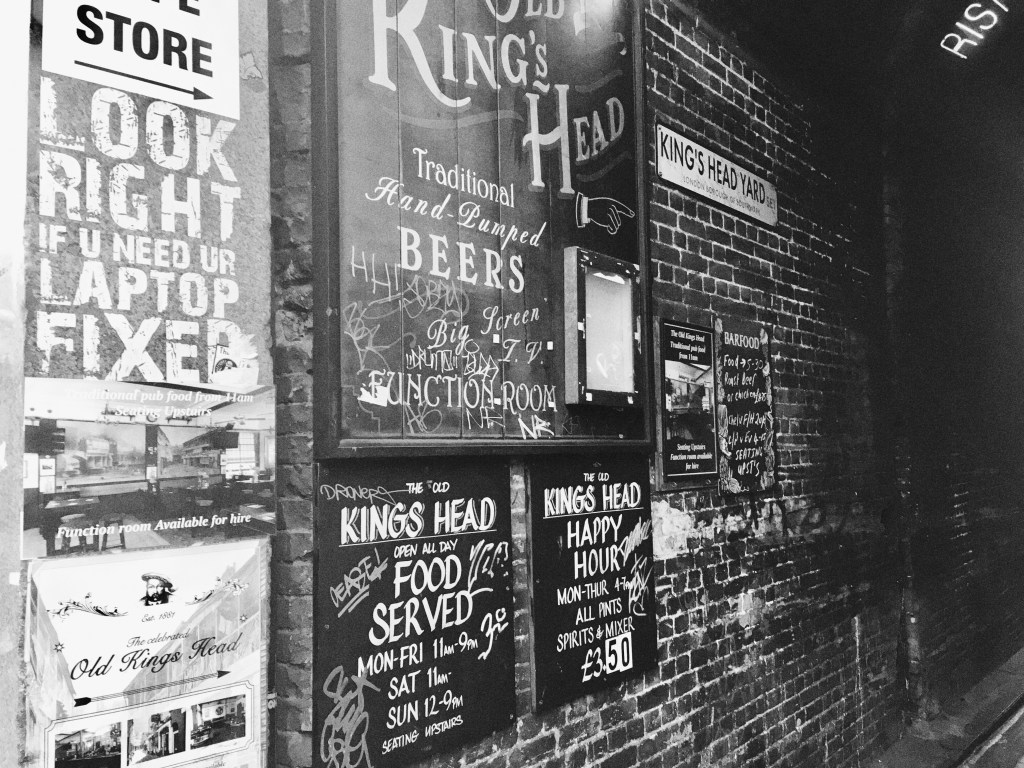 STORE
LOOK
RIGHT
IF U NEED UR
LAPTOP
FIXED
Traditional pub food from 11am
Seating Upstairs
Function room Available for hire
Est. 1881
The celebrated
Old Kings Head
OLD
KING'S
HEAD
Traditional
Hand-Pumped
BEERS
Big Screen
T.V.
FUNCTION ROOM
THE OLD
KINGS HEAD
OPEN ALL DAY
FOOD
SERVED
MON-FRI 11AM-9PM
SAT 11AM-
SUN 12-9PM
SEATING UPSTAIRS
THE OLD
KINGS HEAD
HAPPY
HOUR
MON-THUR 4-7PM
ALL PINTS
SPIRITS & MIXER
£3.50
KING'S HEAD YARD SE1
LONDON BOROUGH OF SOUTHWARK
The Old Kings Head
Traditional pub food
from 11am
Seating Upstairs
Function room available
for hire
BARFOOD
Roast Beef
SEATING
UPST'S
RIST